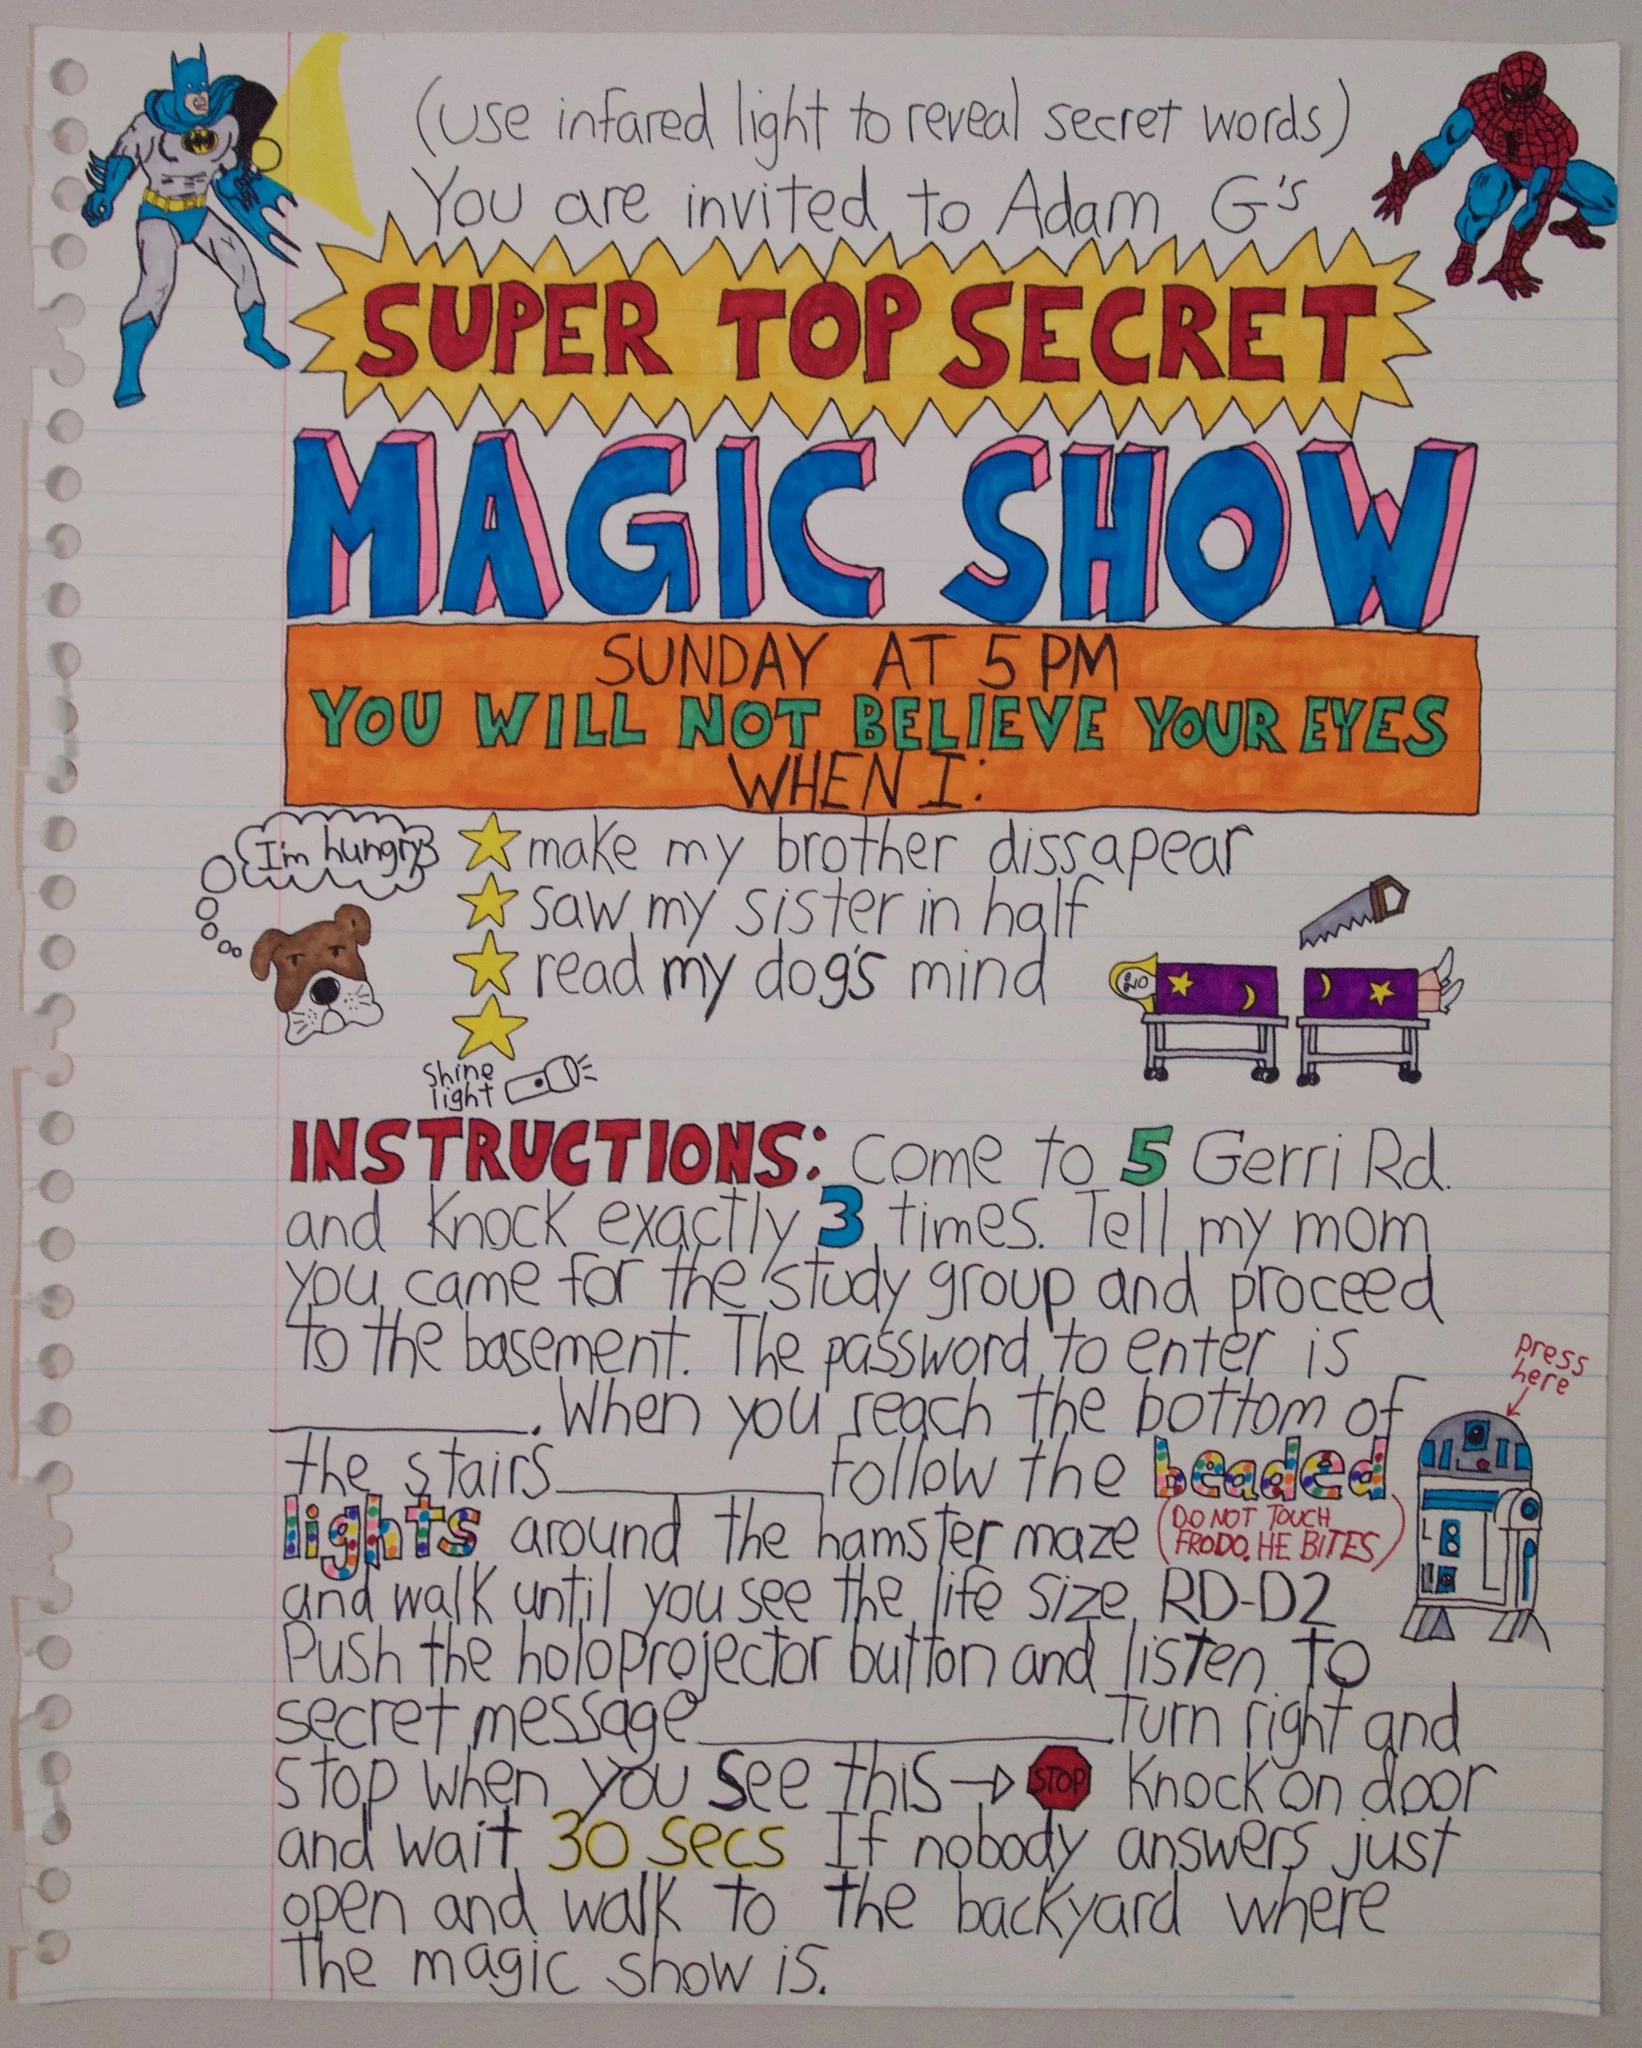 (use infared light to reveal secret words)
You are invited to Adam G's
SUPER TOP SECRET
MAGIC SHOW
SUNDAY AT 5 PM
YOU WILL NOT BELIEVE YOUR EYES
WHEN I:
I'm hungry
make my brother dissapear
saw my sister in half
read my dog's mind
NO
Shine
light
INSTRUCTIONS: Come to 5 Gerri Rd.
and knock exactly 3 times. Tell my mom
you came for the study group and proceed
to the basement. The password to enter is
press
here
__________. When you reach the bottom of
the stairs__________ Follow the beaded
lights around the hamster maze (DO NOT TOUCH
FRODO. HE BITES)
and walk until you see the life size RD-D2
Push the holoprojector button and listen to
secret message______________. Turn right and
stop when you see this → STOP Knock on door
and wait 30 secs If nobody answers just
open and walk to the backyard where
the magic show is.